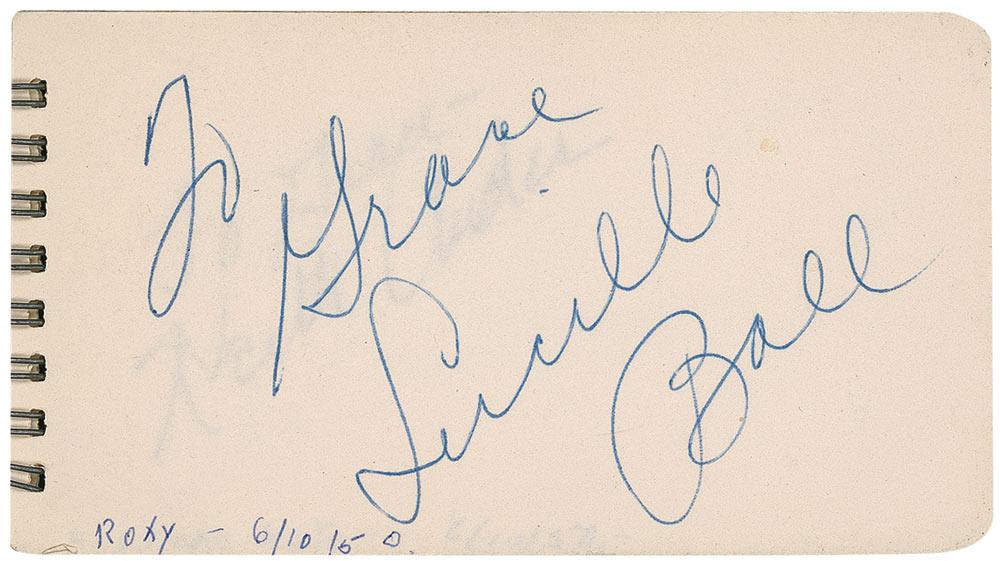 To Grace
Lucille
Ball
Roxy - 6/10/50